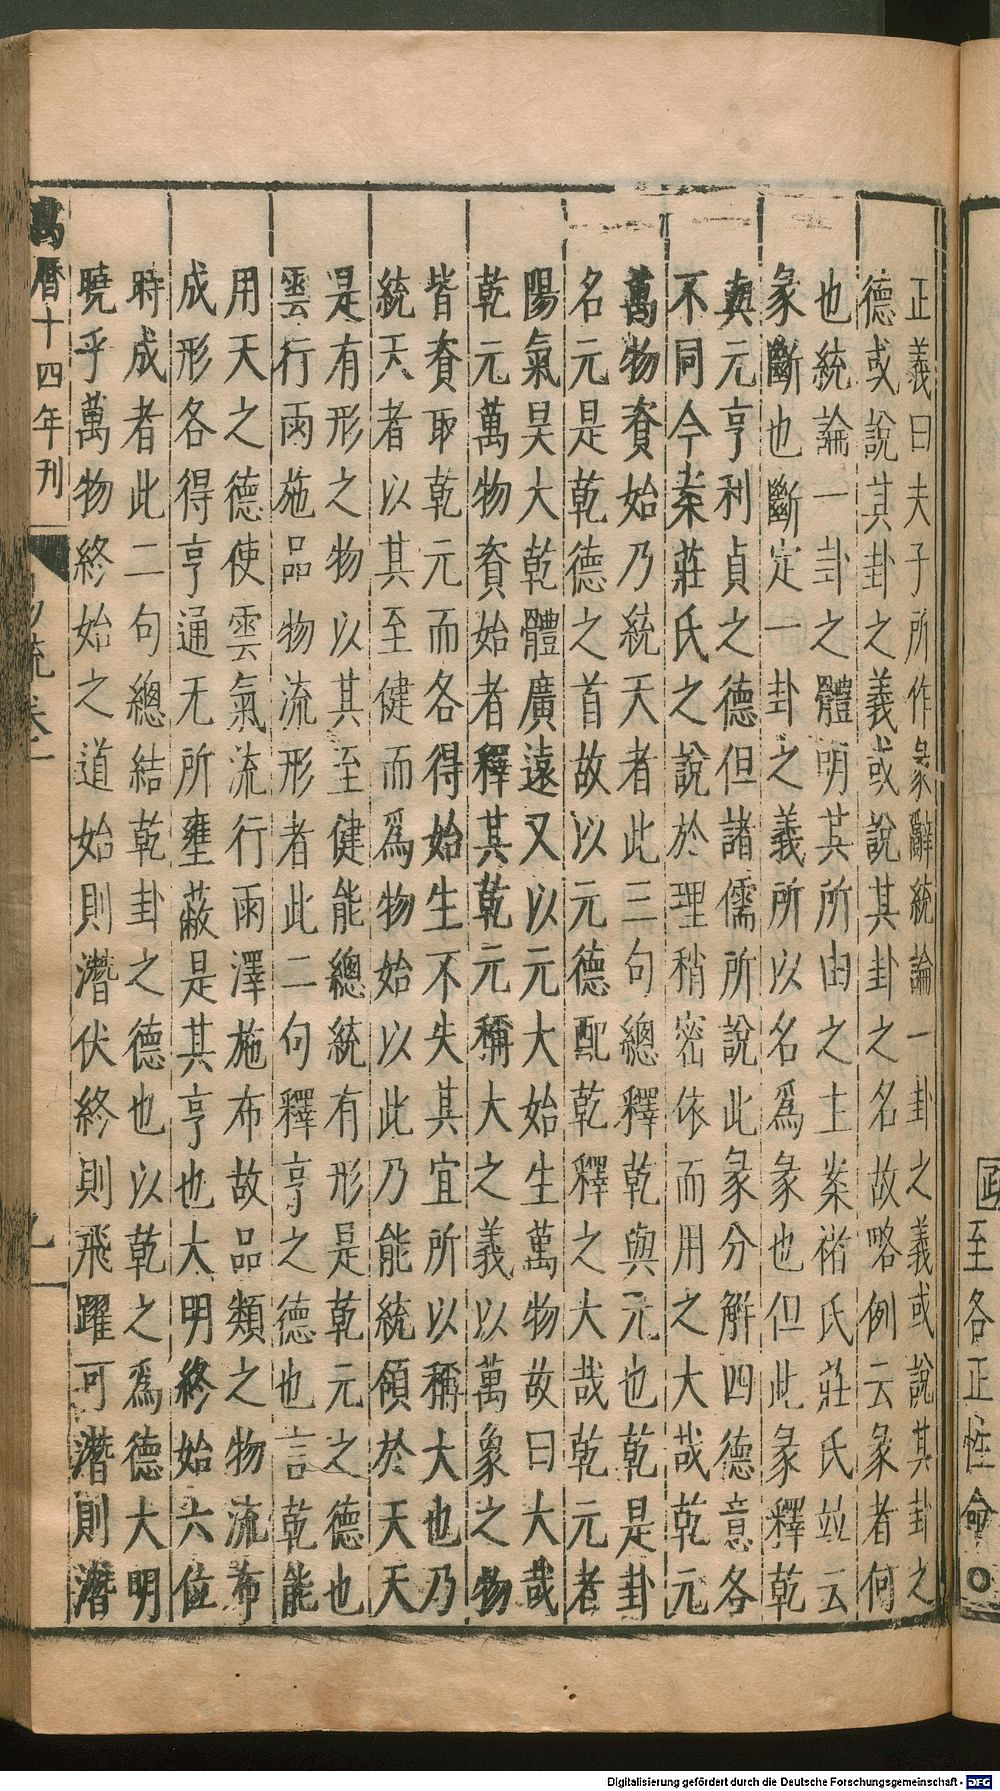 至各正性命○
正義曰夫子所作彖辭統論一卦之義或說其卦之
德或說其卦之義或說其卦之名故略例云彖者何
也統論一卦之體明其所由之主案褚氏莊氏並云
彖斷也斷定一卦之義所以名為彖也但此彖釋乾
與元亨利貞之德但諸儒所說此彖分解四德意各
不同今案莊氏之說於理稍密依而用之大哉乾元
萬物資始乃統天者此三句總釋乾與元也乾是卦
名元是乾德之首故以元德配乾釋之大哉乾元者
陽氣昊大乾體廣遠又以元大始生萬物故曰大哉
乾元萬物資始者釋其乾元稱大之義以萬象之物
皆資取乾元而各得始生不失其宜所以稱大也乃
統天者以其至健而為物始以此乃能統領於天天
是有形之物以其至健能總統有形是乾元之德也
雲行雨施品物流形者此二句釋亨之德也言乾能
用天之德使雲氣流行雨澤施布故品類之物流布
成形各得亨通无所壅蔽是其亨也大明終始六位
時成者此二句總結乾卦之德也以乾之為德大明
曉乎萬物終始之道始則潛伏終則飛躍可潛則潛
萬曆十四年刊
Digitalisierung gefördert durch die Deutsche Forschungsgemeinschaft - DFG